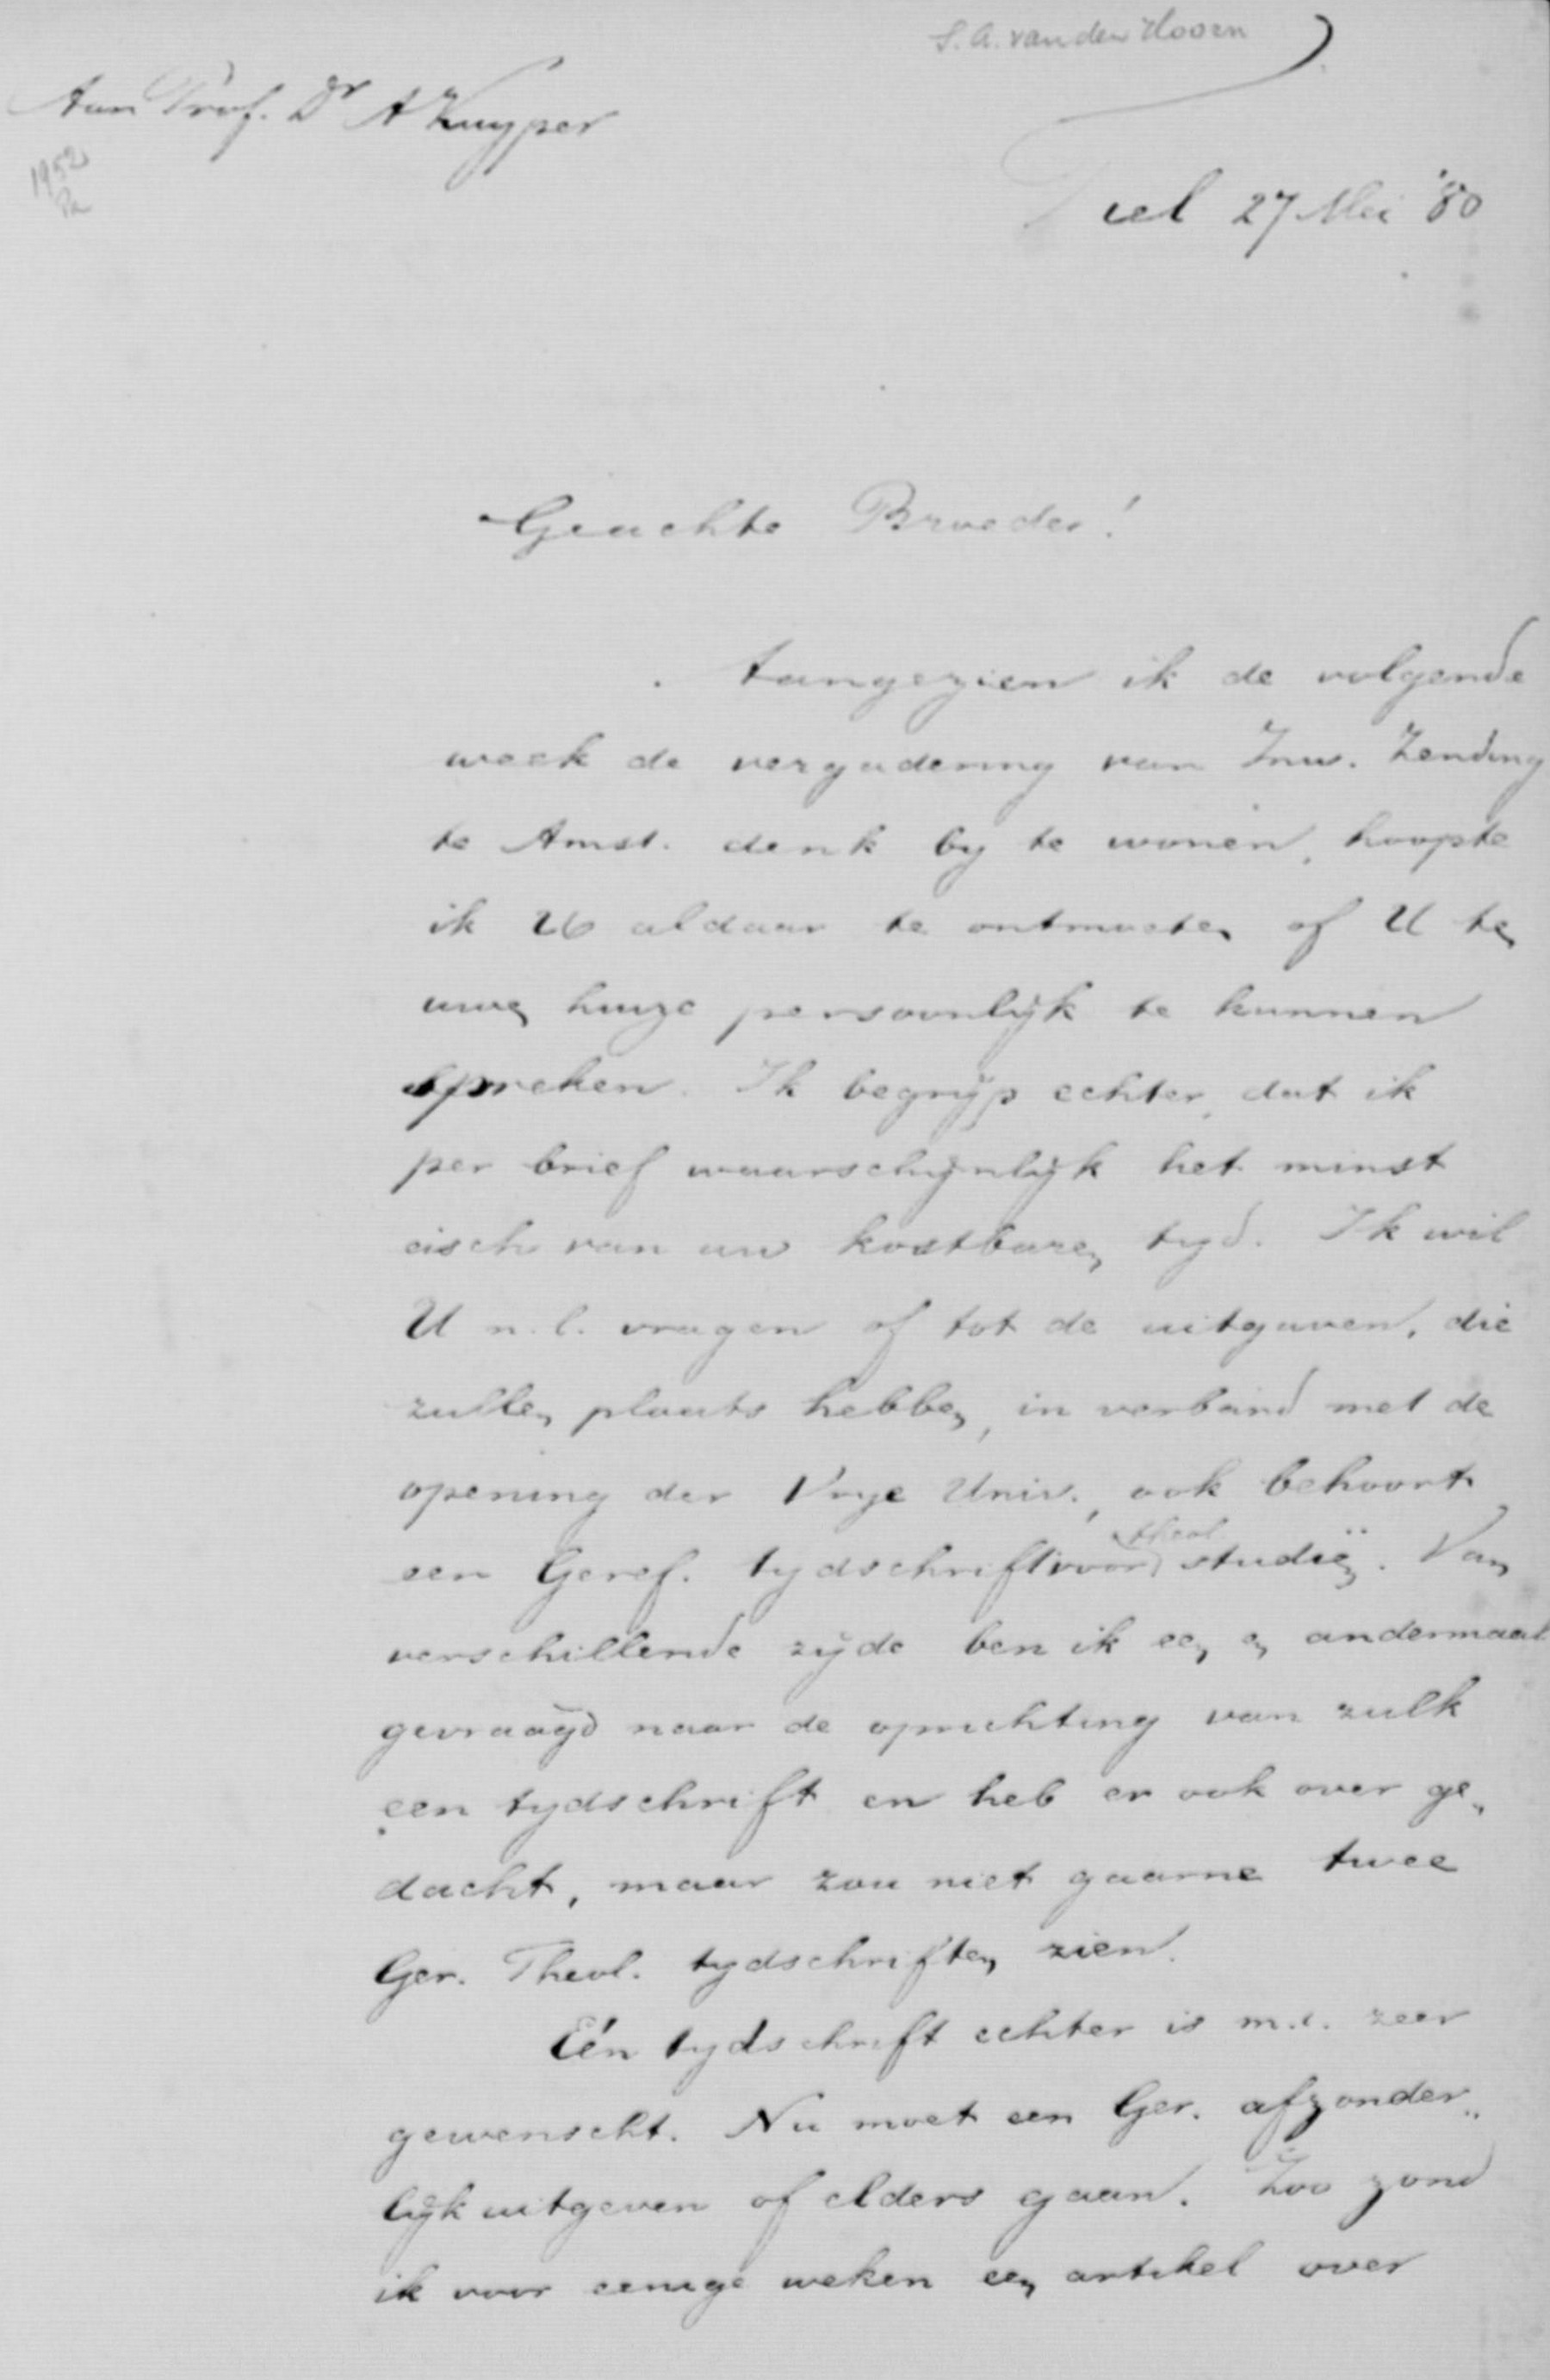 S. A. van den Hoorn
Aan Prof. Dr A Kuyper
1952
Pa
Tiel 27 Mei '80
Geachte Broeder!
Aangezien ik de volgende
week de vergadering van Inw. Zending
te Amst. denk by te wonen, hoopte
ik U aldaar te ontmoeten of U te
uwen huize persoonlijk te kunnen
spreken. Ik begrijp echter, dat ik
per brief waarschijnlijk het minst
eisch van uw kostbaren tyd. Ik wil
U n.l. vragen of tot de uitgaven, die
zullen plaats hebben, in verband met de
opening der Vrye Univ., ook behoort
een Geref. tydschrift voor theol. studiën. Van
verschillende zijde ben ik een en andermaal
gevraagd naar de oprichting van zulk
een tydschrift en heb er ook over ge„
dacht, maar zou niet gaarne twee
Ger. Theol. tydschriften zien.
Eén tydschrift echter is m.i. zeer
gewenscht. Nu moet een Ger. afzonder„
lijk uitgeven of elders gaan. Zoo zond
ik voor eenige weken een artikel over